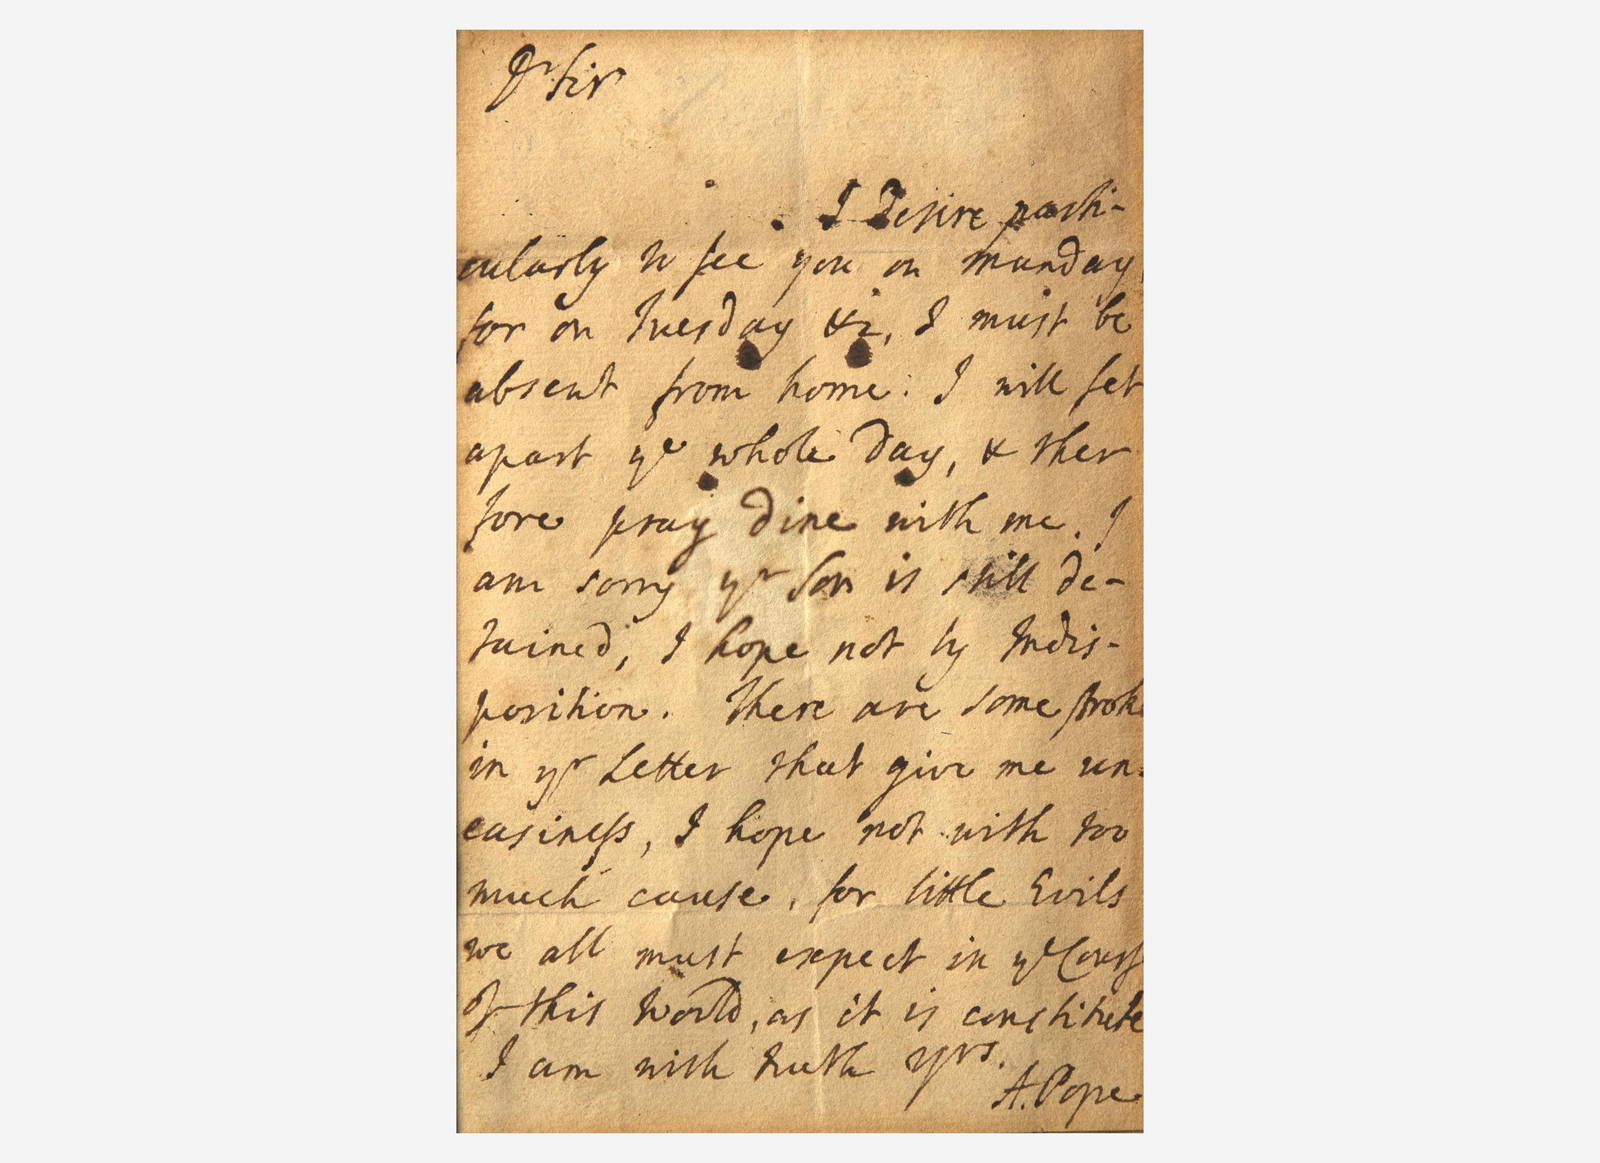 Dr Sir
I Desire parti-
cularly to see you on munday
for on Tuesday &c, I must be
absent from home: I will set
apart ye whole day, & ther
fore pray dine with me. I
am sorry yr Son is still de-
tained, I hope not by Indis-
position. There are some stroke
in yr Letter that give me un-
easiness, I hope not with too
much cause, for little Evils
we all must expect in ye Cours
of this World, as it is constitute
I am with truth yrs.
A. Pope